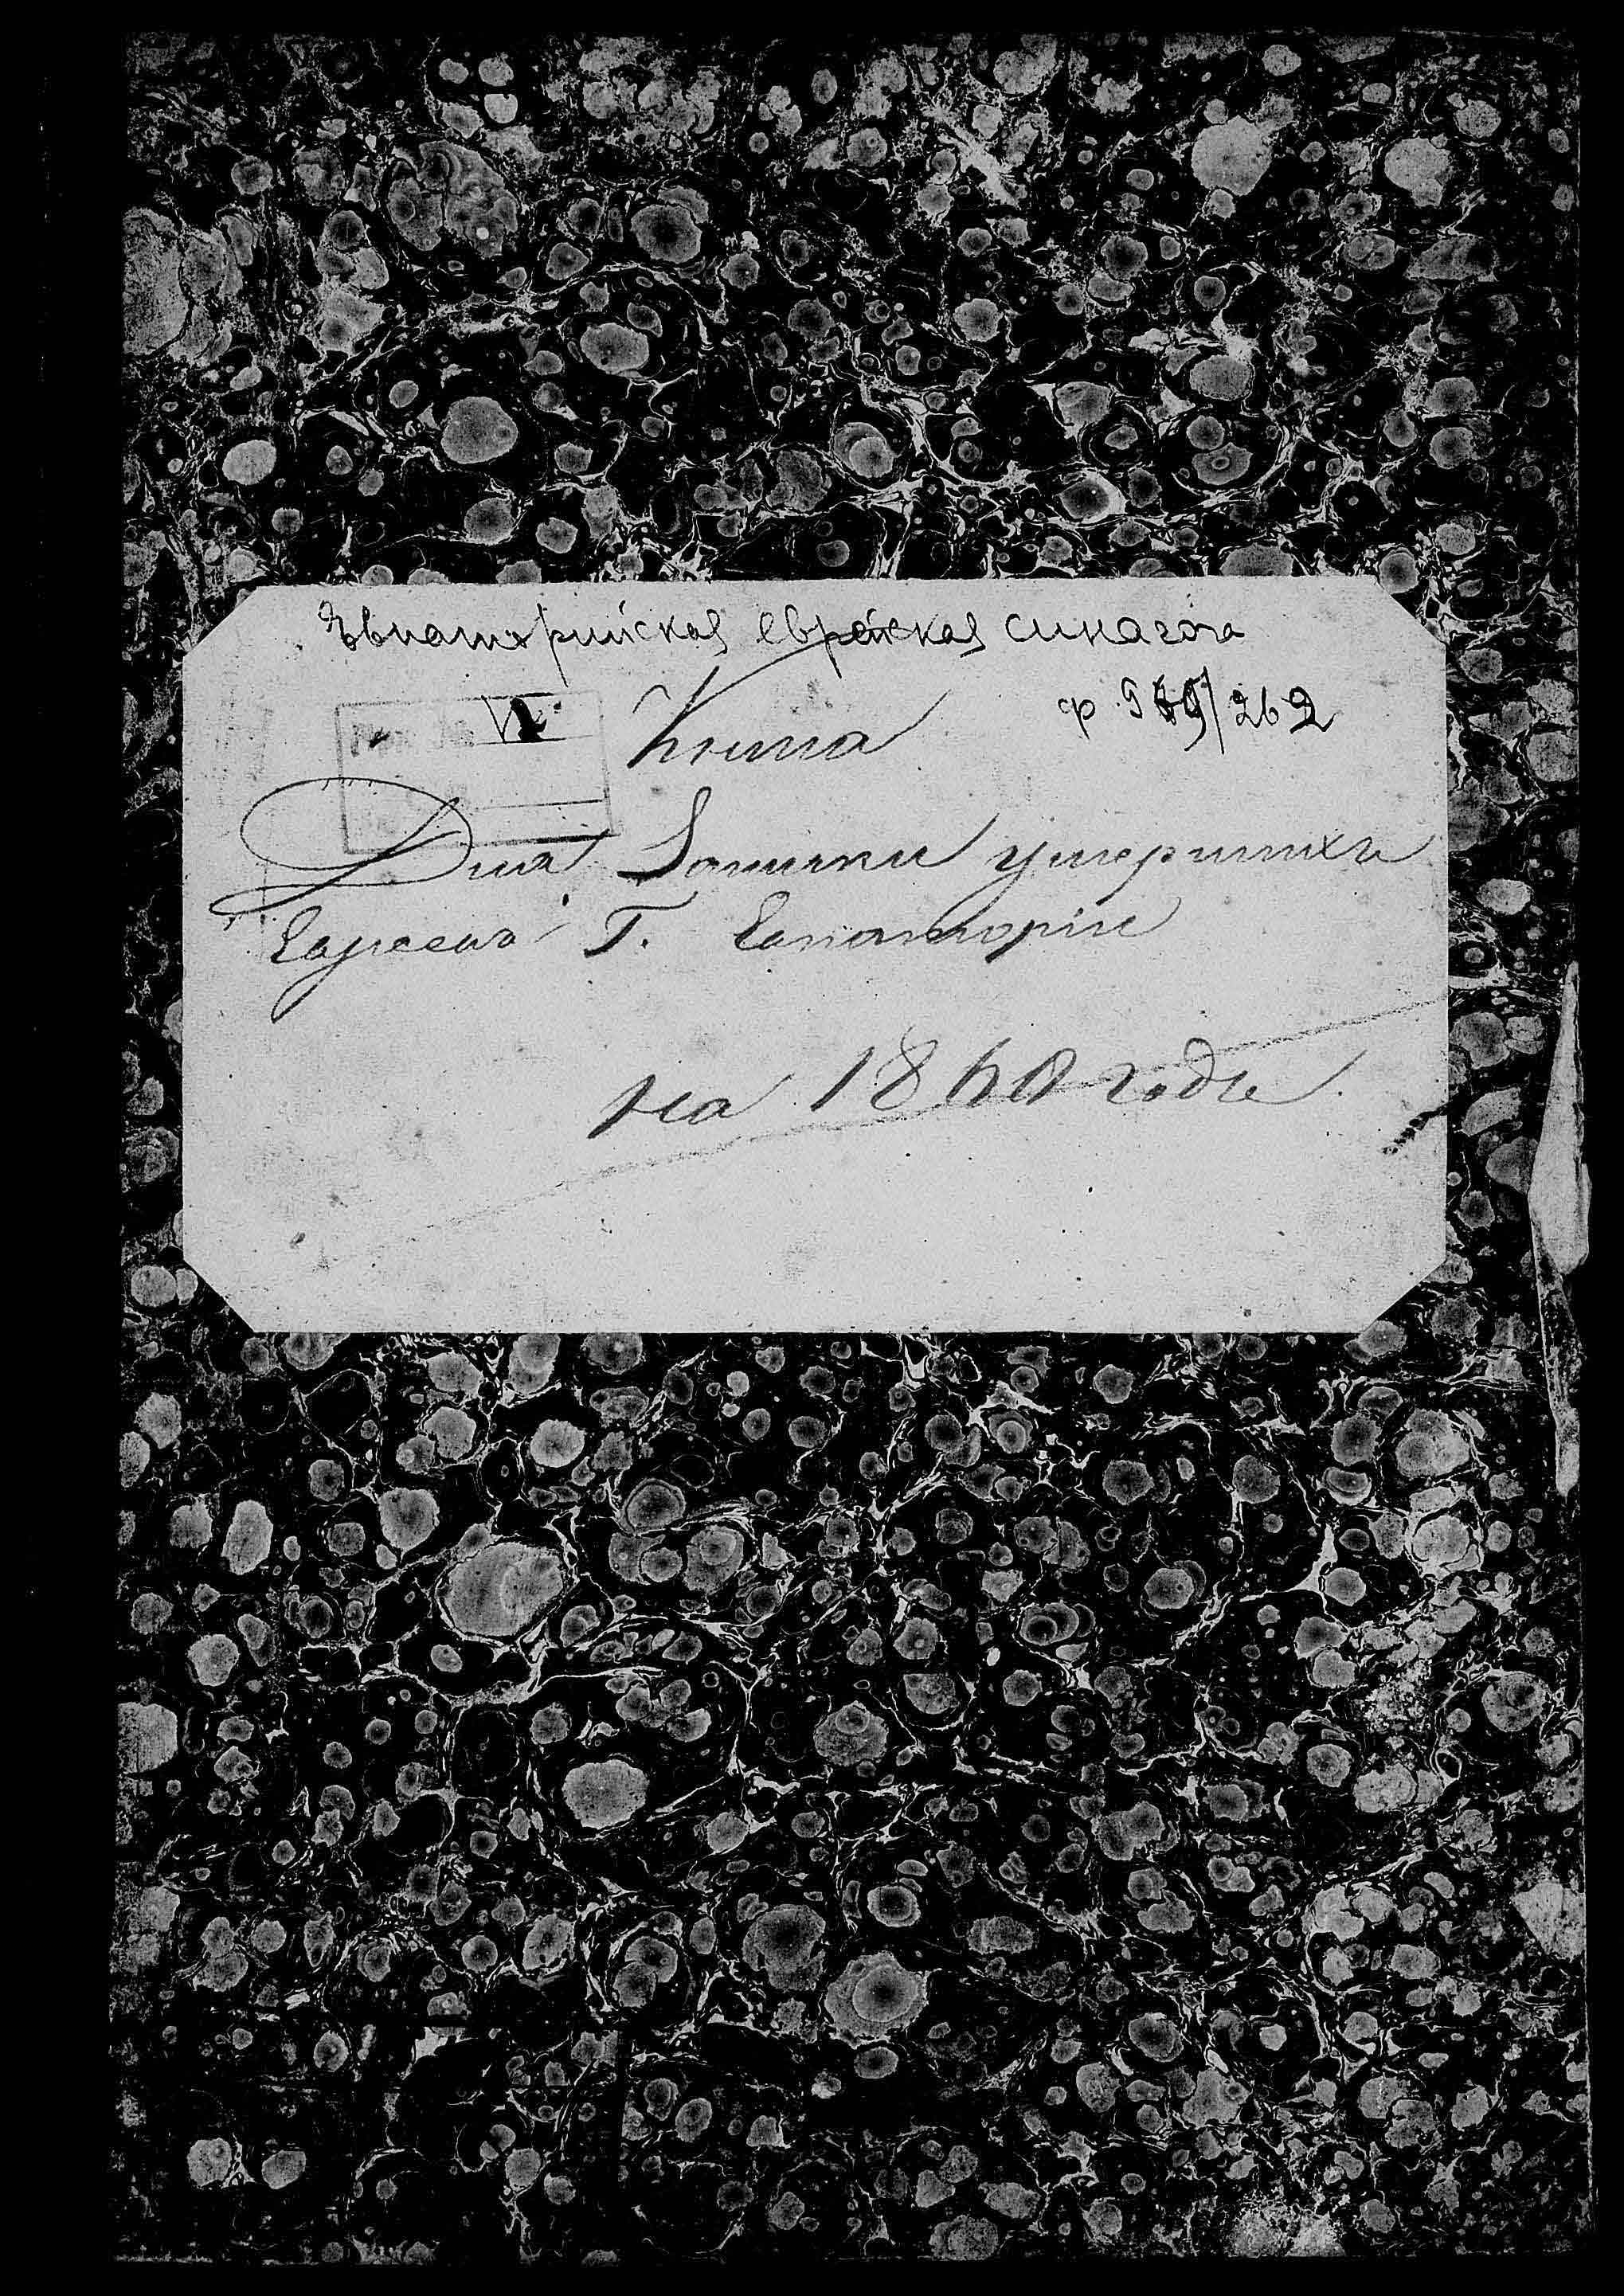 Евпаторийская еврейская синагога
Книга
Для Записки умершихъ
Евреевъ Г. Евпаторіи
на 1860 годъ